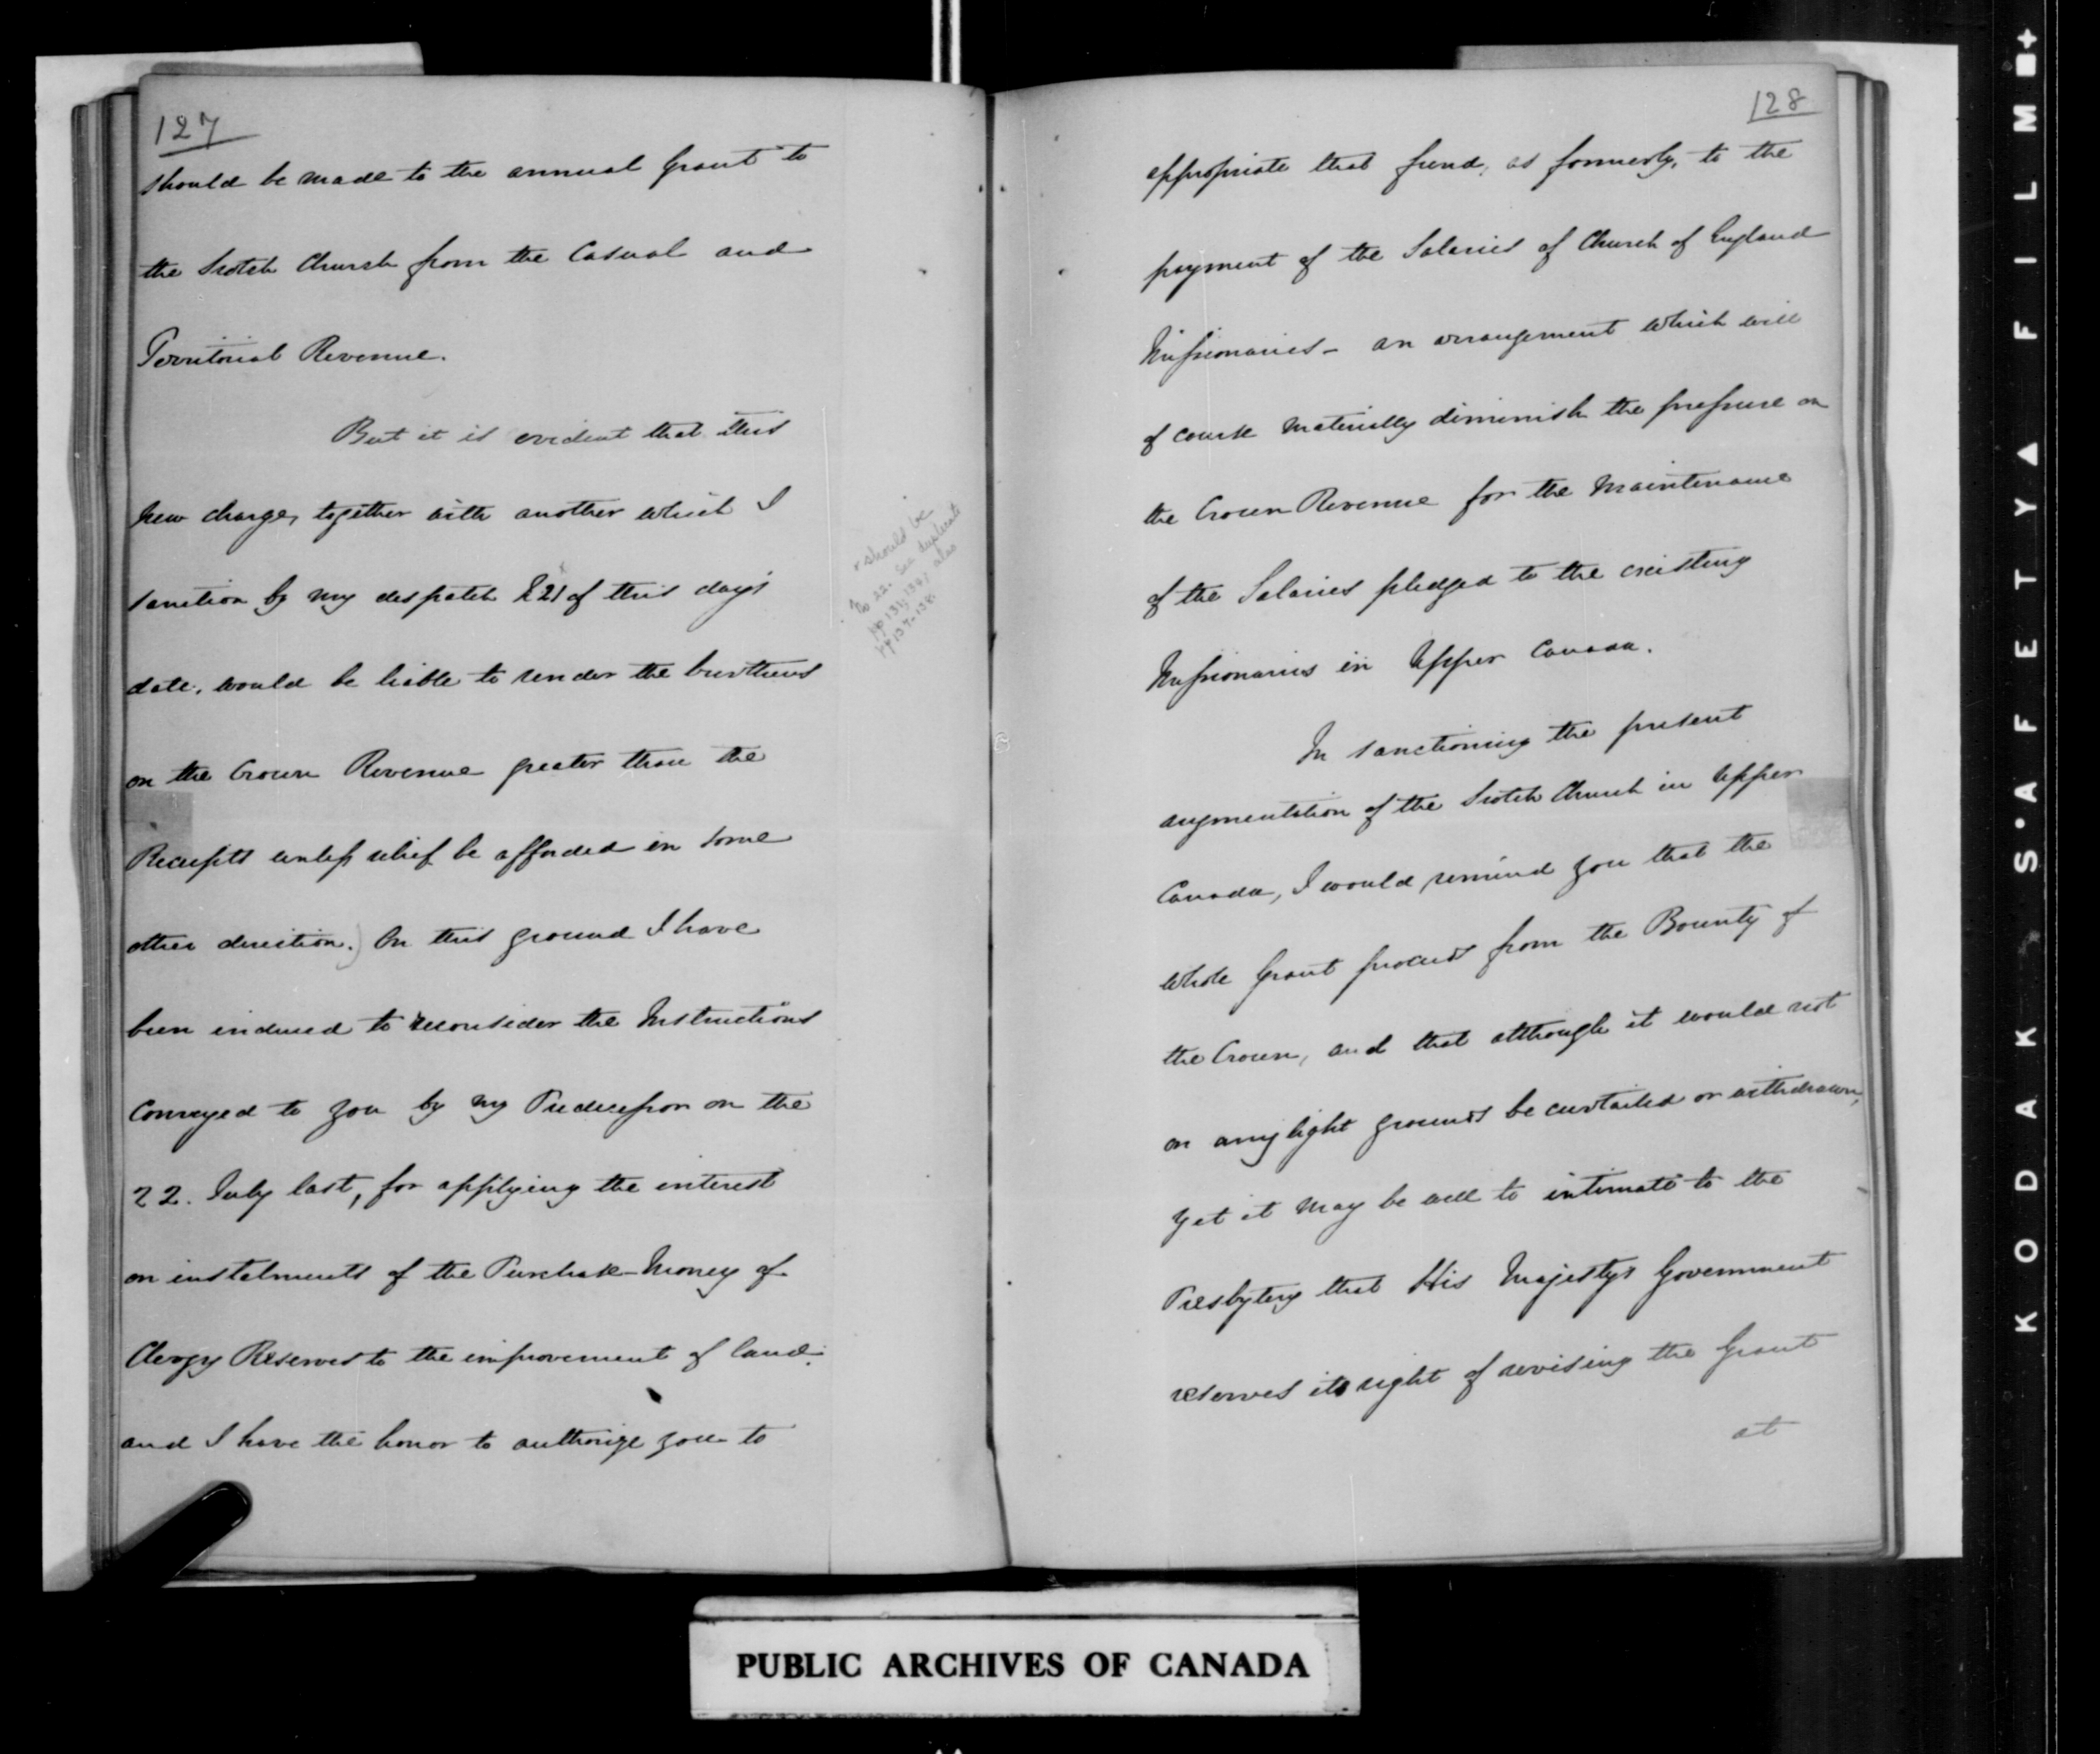 127
should be made to the annual Grant to
the Scotch Church from the Casual and
Territorial Revenue.
But it is evident that this
new charge, together with another which I
sanction by my despatch 221 of this day's
date, would be liable to render the burthens
on the Crown Revenue greater than the
Receipts unless relief be afforded in some
other direction.) On this ground I have
been induced to reconsider the Instructions
conveyed to you by my Predecessor on the
22. July last, for applying the interest
on instalments of the Purchase-Money of
Clergy Reserves to the improvement of land;
and I have the honor to authorize you to
x should be
No 22. See duplicate
pp 131, 134; also
pp 137-138.
128
appropriate that fund, as formerly, to the
payment of the Salaries of Church of England
Missionaries - an arrangement which will
of course materially diminish the pressure on
the Crown Revenue for the Maintenance
of the Salaries pledged to the existing
Missionaries in Upper Canada.
In sanctioning the present
augmentation of the Scotch Church in Upper
Canada, I would remind you that the
whole Grant proceeds from the Bounty of
the Crown, and that although it would not
on any light grounds be curtailed or withdrawn,
yet it may be well to intimate to the
Presbytery that His Majesty's Government
reserves its right of revising the Grant
at
PUBLIC ARCHIVES OF CANADA
KODAK S•AFETY▲FILM■+